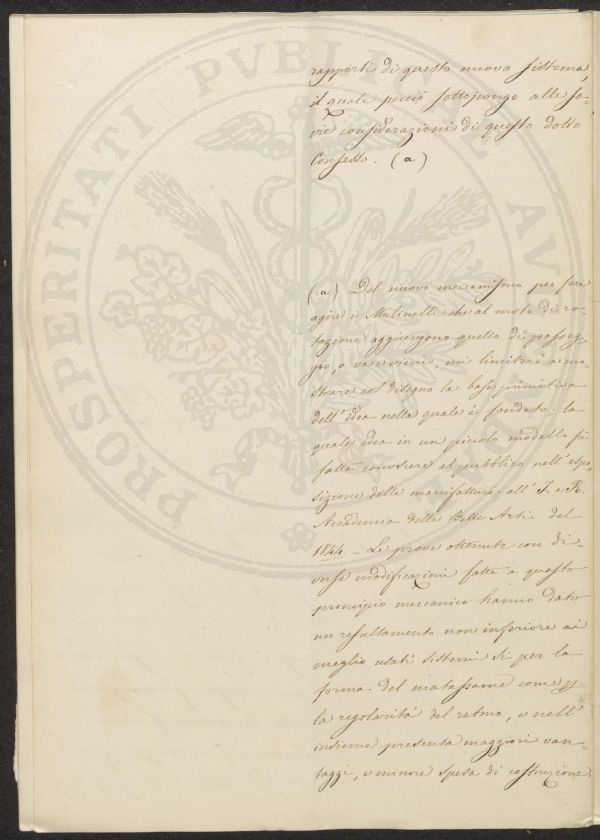 rapporti di questo nuovo sistema,
il quale perciò sottopongo alle sa-
vie considerazioni di questo dotto
Consesso. (a)
(a) Del nuovo meccanismo per fare
agire i Mulinelli che al moto di ro-
tazione aggiungono quello di passeg-
gio, o va e vieni, mi limiterò a mo-
strare col disegno la base primitiva
dell'idea nella quale è fondato; la
quale idea in un piccolo modello fu
fatta conoscere al pubblico nell'espo-
sizione delle manifatture all'I. e R.
Accademia delle Belle Arti del
1844. - Le prove ottenute con di-
verse modificazioni fatte a questo
principio meccanico hanno dato
un resultamento non inferiore ai
meglio usati sistemi sì per la
forma del matassame come p
la regolarità del retmo, e nell'
insieme presenta maggiori van-
taggi, e minore spesa di costruzione.
PROSPERITATI PVBLICAE AV